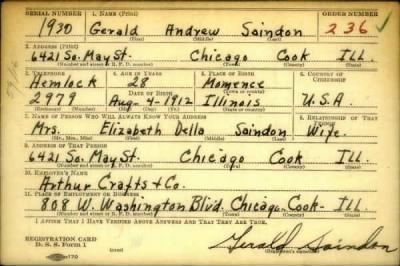 SERIAL NUMBER 1. NAME (Print) ORDER NUMBER
1930 Gerald Andrew Soindon 236
(First) (Middle) (Last)
2. ADDRESS (Print)
6421 So. May St. Chicago Cook ILL.
(Number and street or R. F. D. number) (Town) (County) (State)
3. TELEPHONE 4. AGE IN YEARS 5. PLACE OF BIRTH 6. COUNTRY OF CITIZENSHIP
Hemlock 28 Momence
DATE OF BIRTH (Town or county)
2979 Aug-4-1912 Illinois U.S.A.
(Exchange) (Number) (Mo.) (Day) (Yr.) (State or country)
7. NAME OF PERSON WHO WILL ALWAYS KNOW YOUR ADDRESS 8. RELATIONSHIP OF THAT PERSON
Mrs. Elizabeth Della Soindon Wife.
(Mr., Mrs., Miss) (First) (Middle) (Last)
9. ADDRESS OF THAT PERSON
6421 So. May St. Chicago Cook ILL.
(Number and street or R. F. D. number) (Town) (County) (State)
10. EMPLOYER'S NAME
Arthur Crafts & Co.
11. PLACE OF EMPLOYMENT OR BUSINESS
808 W. Washington Blvd. Chicago, Cook- ILL
(Number and street or R. F. D. number) (Town) (County) (State)
I AFFIRM THAT I HAVE VERIFIED ABOVE ANSWERS AND THAT THEY ARE TRUE.
REGISTRATION CARD
D. S. S. Form 1 Gerald Soindon
(Registrant's signature)